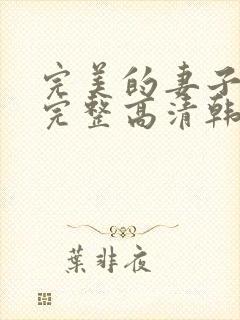 完美的妻子
完整高清韩
葉非夜